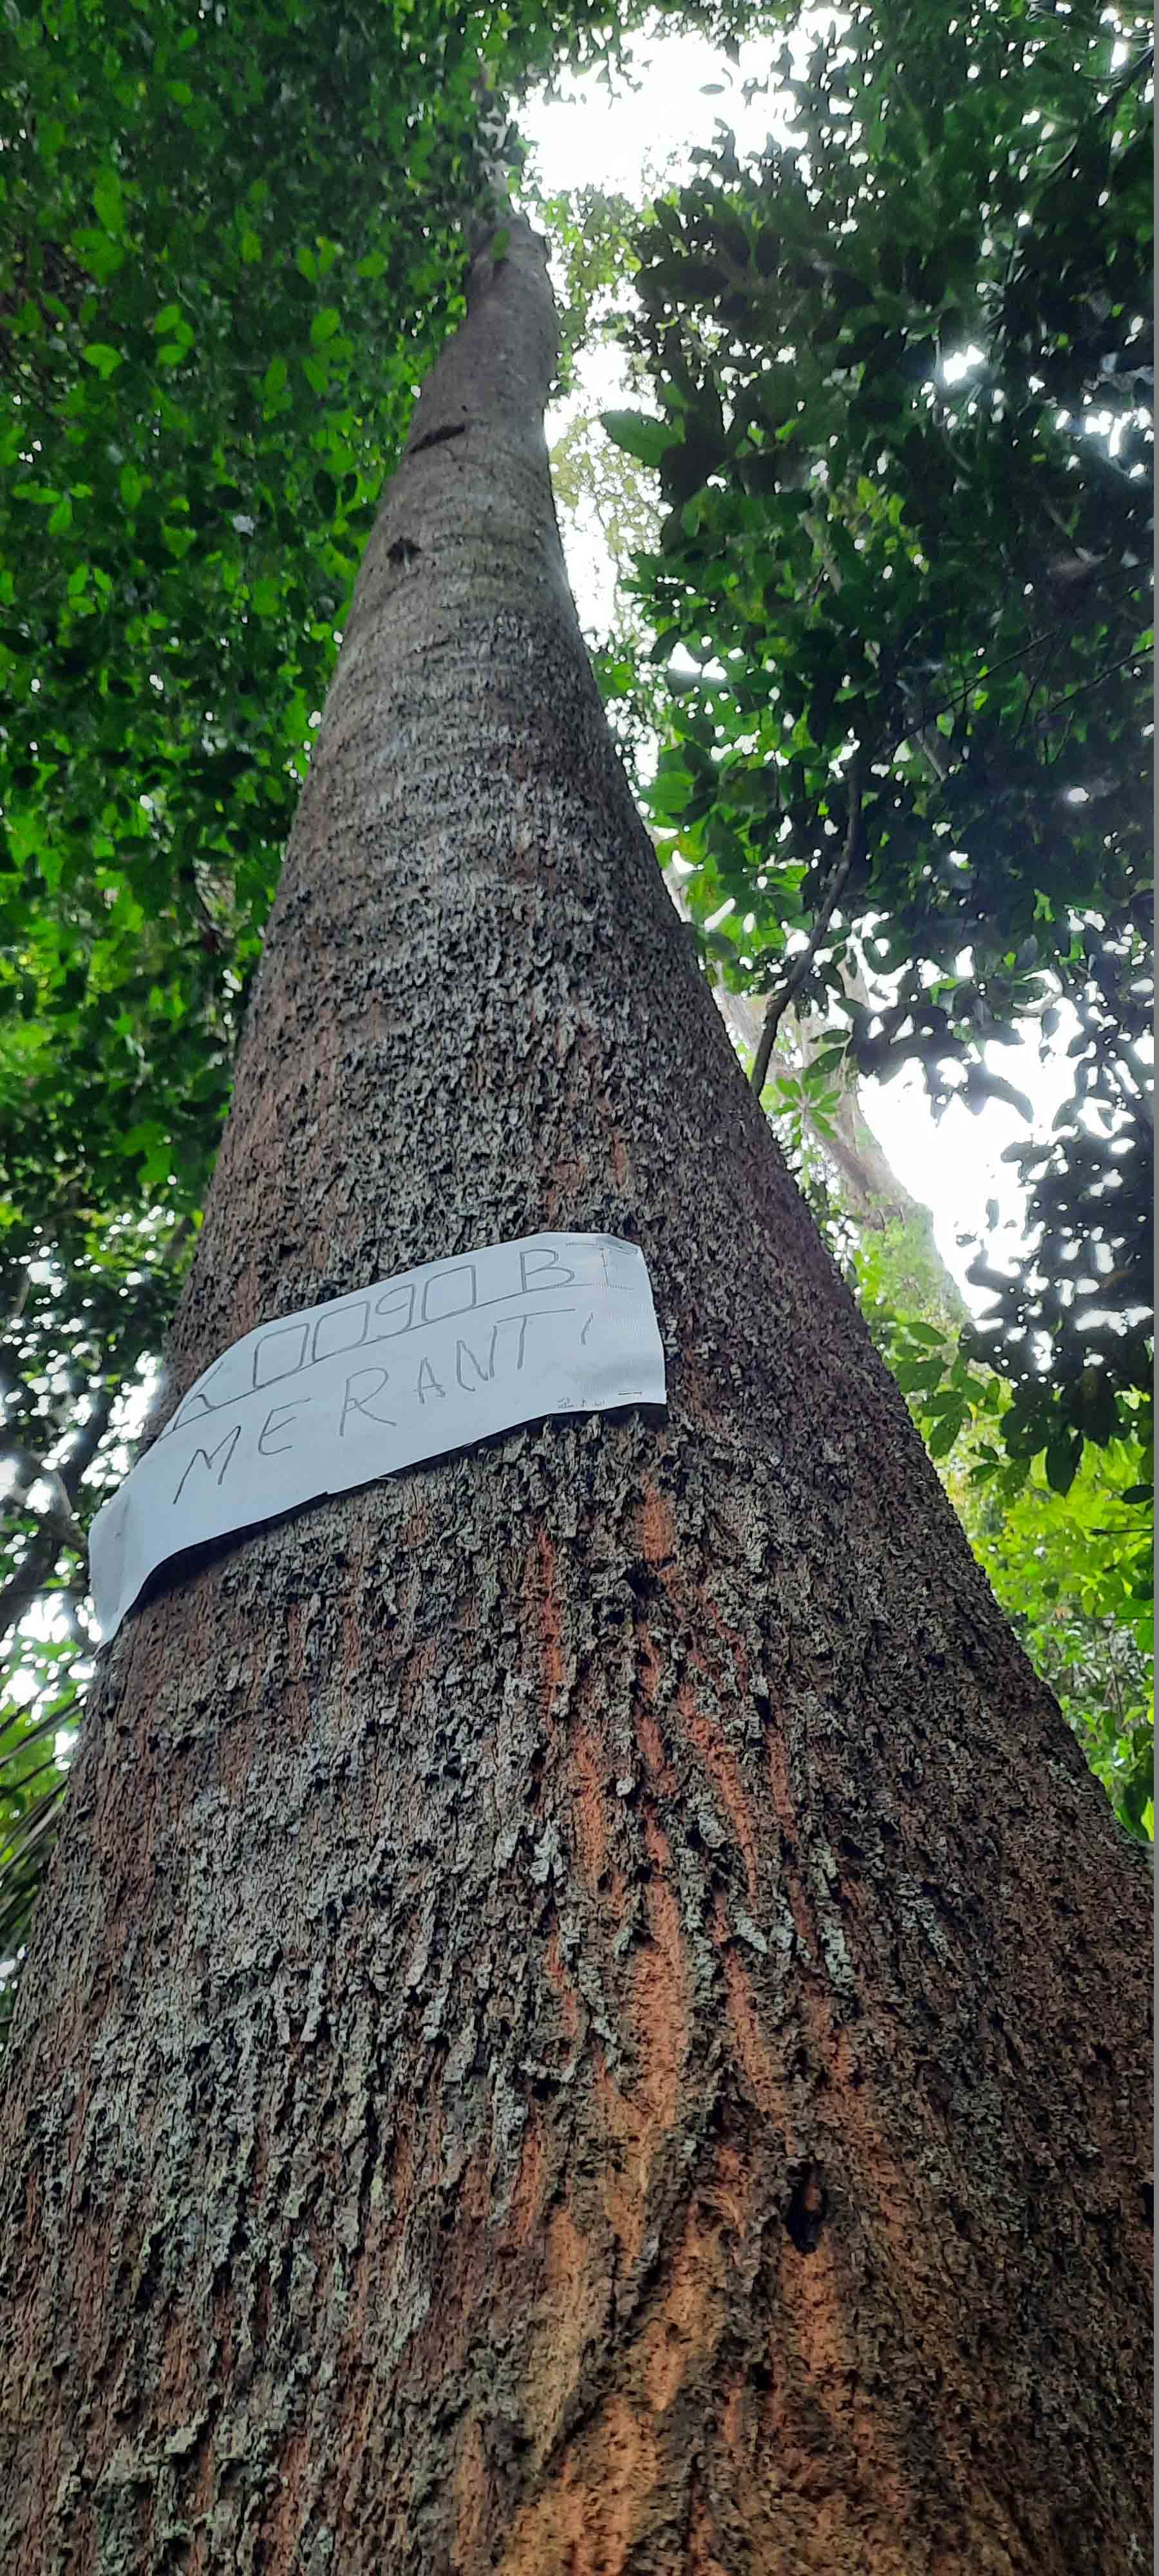 K 0090 BI
MERANTI